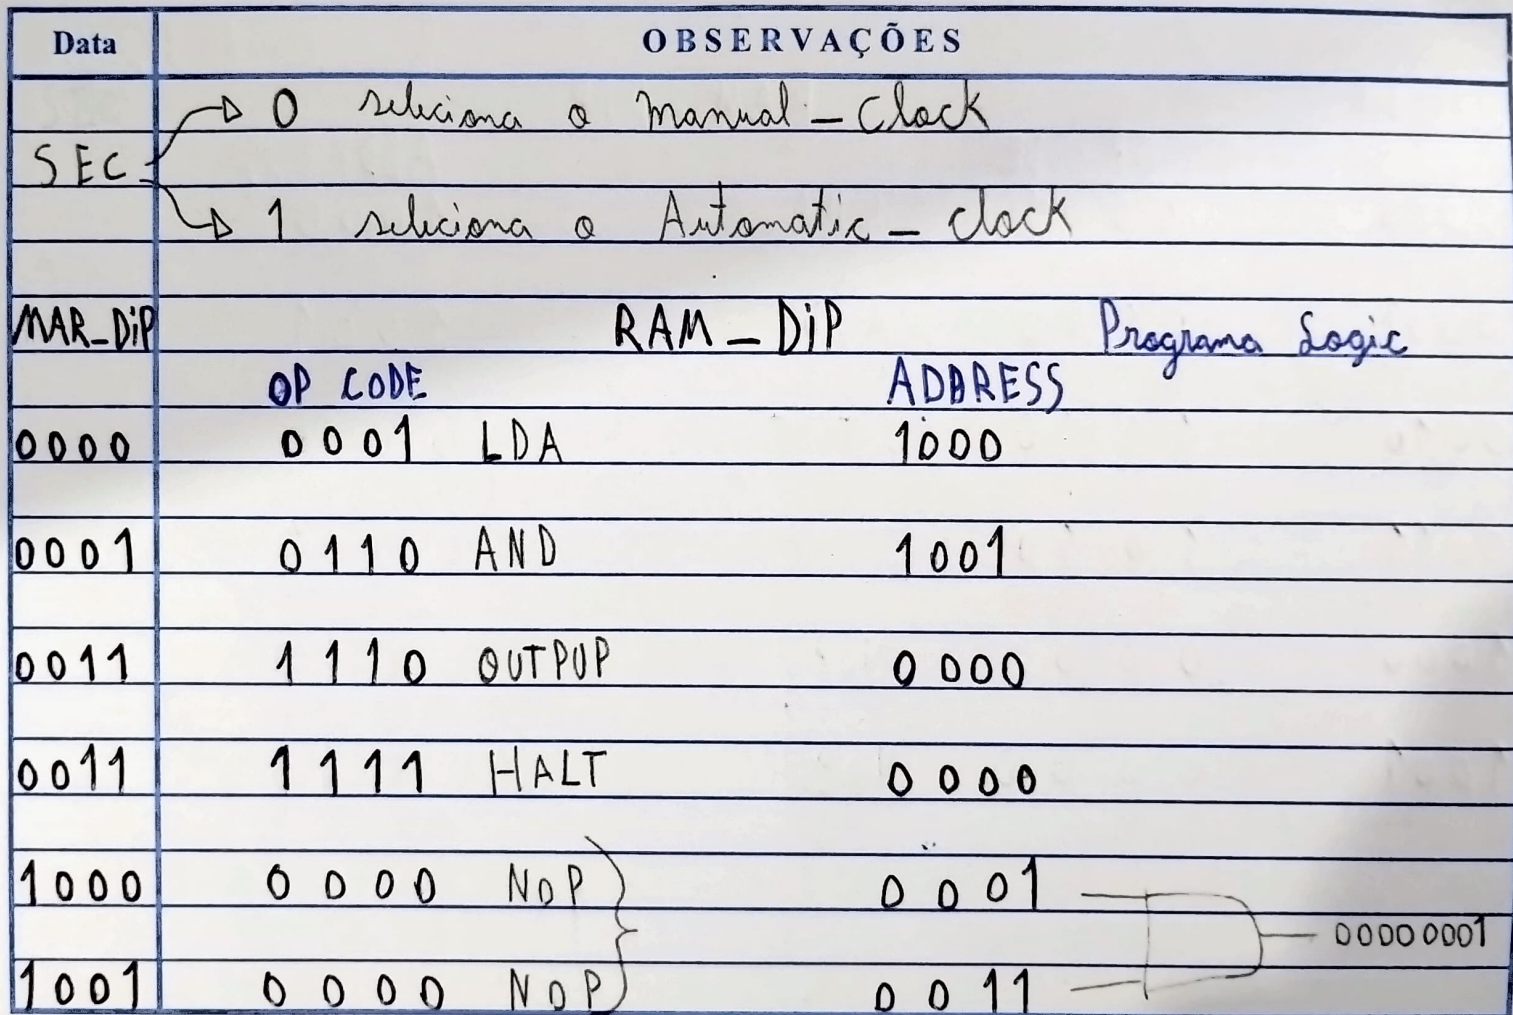 Data OBSERVAÇÕES
0 seleciona o Manual_Clock
SEC
1 seleciona o Automatic_clock
MAR_DiP RAM_DiP Programa Logic
OP CODE ADDRESS
0000 0001 LDA 1000
0001 0110 AND 1001
0011 1110 OUTPUP 0000
0011 1111 HALT 0000
1000 0000 NOP 0001
00000001
1001 0000 NOP 0011